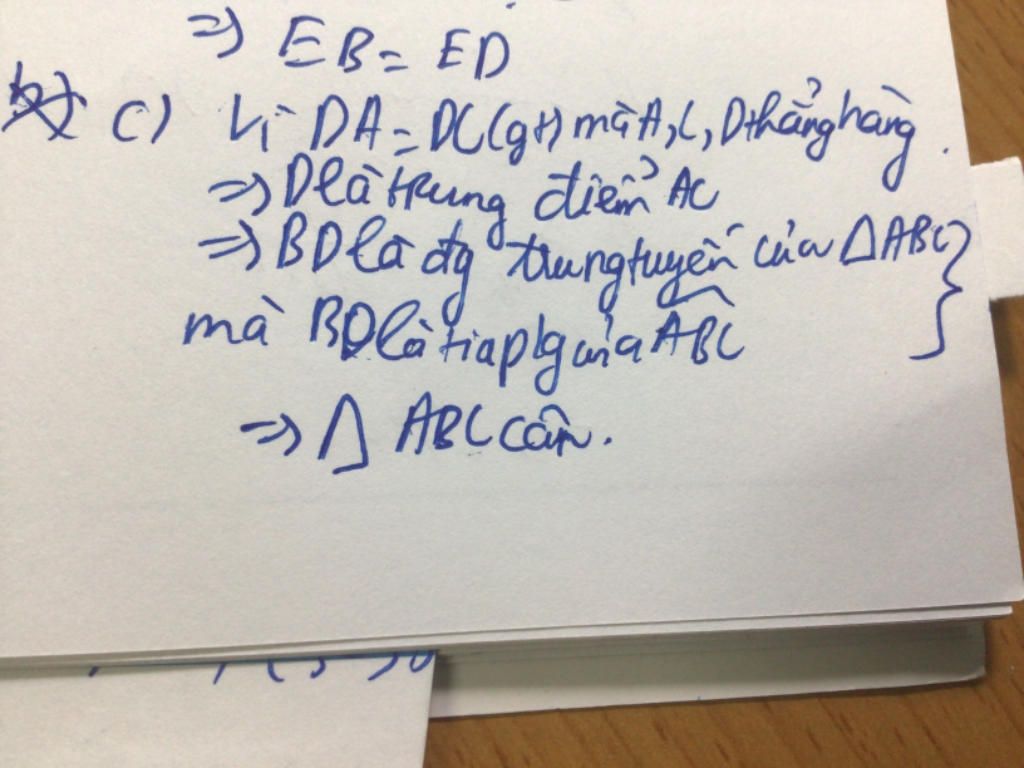 => EB = ED
c) Vì DA = DC (gt) mà A, C, D thẳng hàng.
=> D là trung điểm AC
=> BD là đg trung tuyến của Δ ABC }
mà BD là tia p/g của ABC
=> Δ ABC cân.